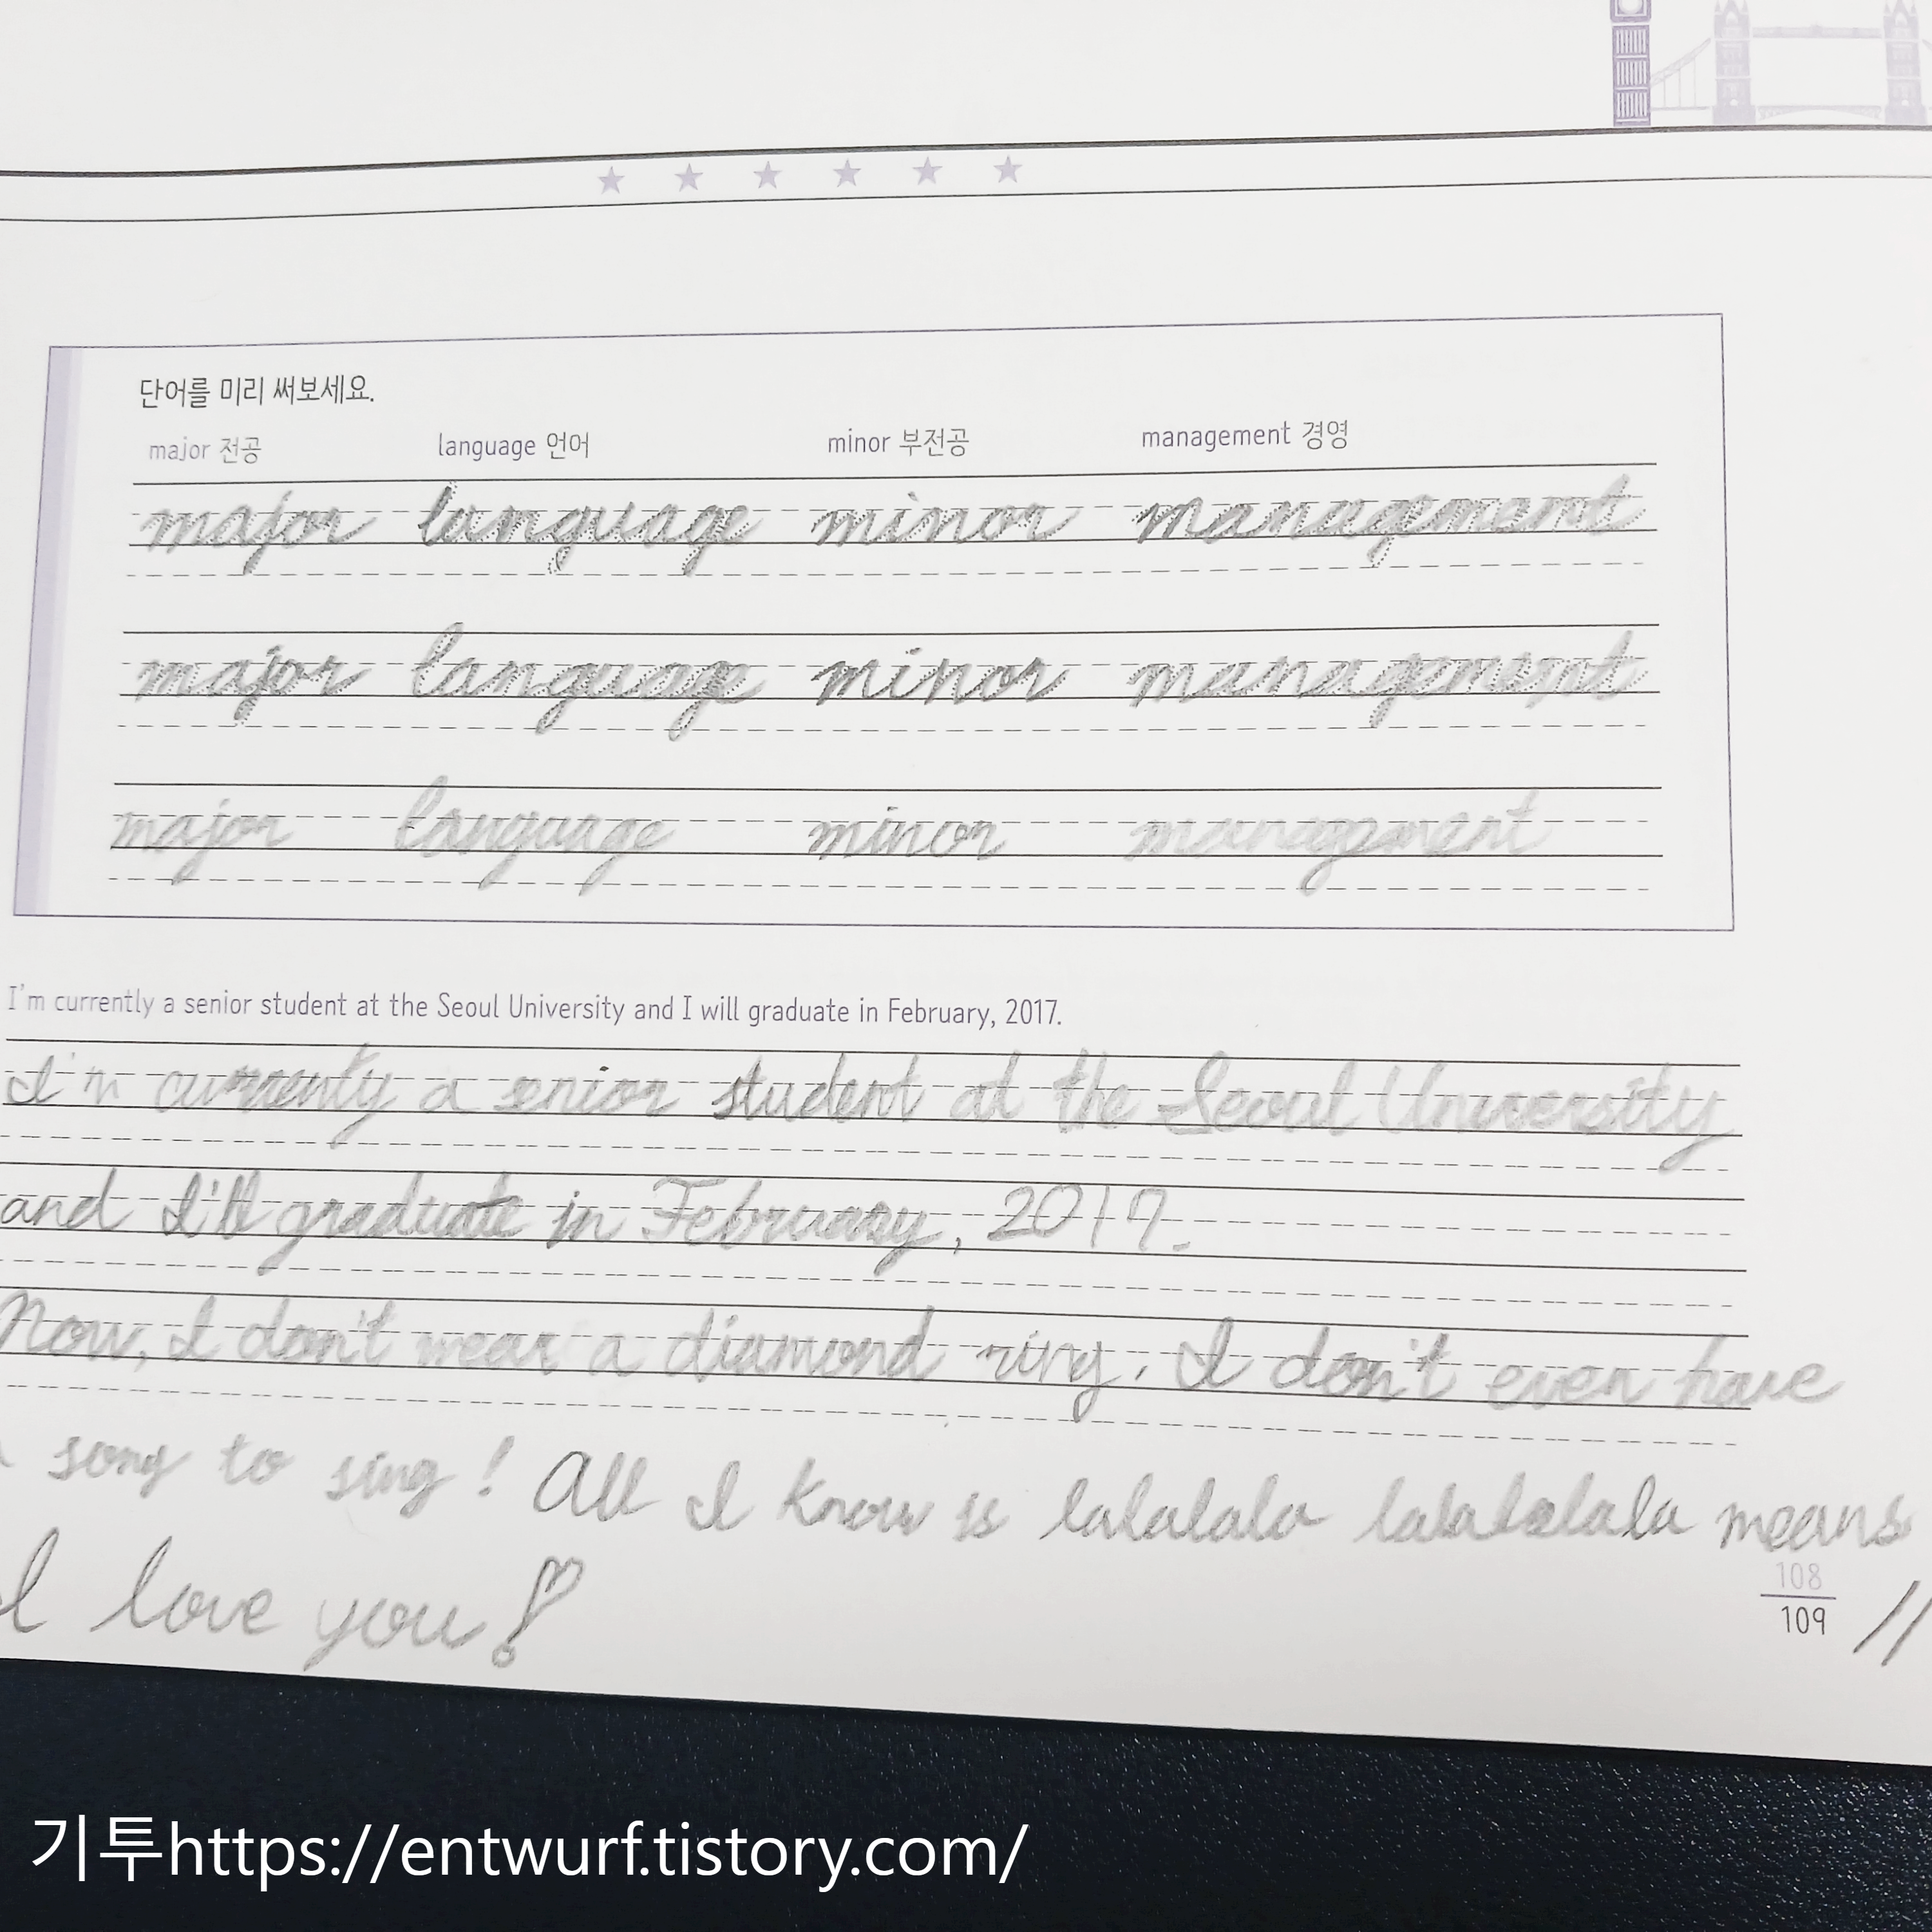 단어를 미리 써보세요.
major 전공 language 언어 minor 부전공 management 경영
major language minor management
major language minor management
major language minor management
I'm currently a senior student at the Seoul University and I will graduate in February, 2017.
I'm currenty a senior student at the Seoul University
and I'll graduate in February, 2017.
Now, I don't wear a diamond ring. I don't even have
a song to sing! All I know is lalalala lalalalala means
I love you!
108
109
기투https://entwurf.tistory.com/